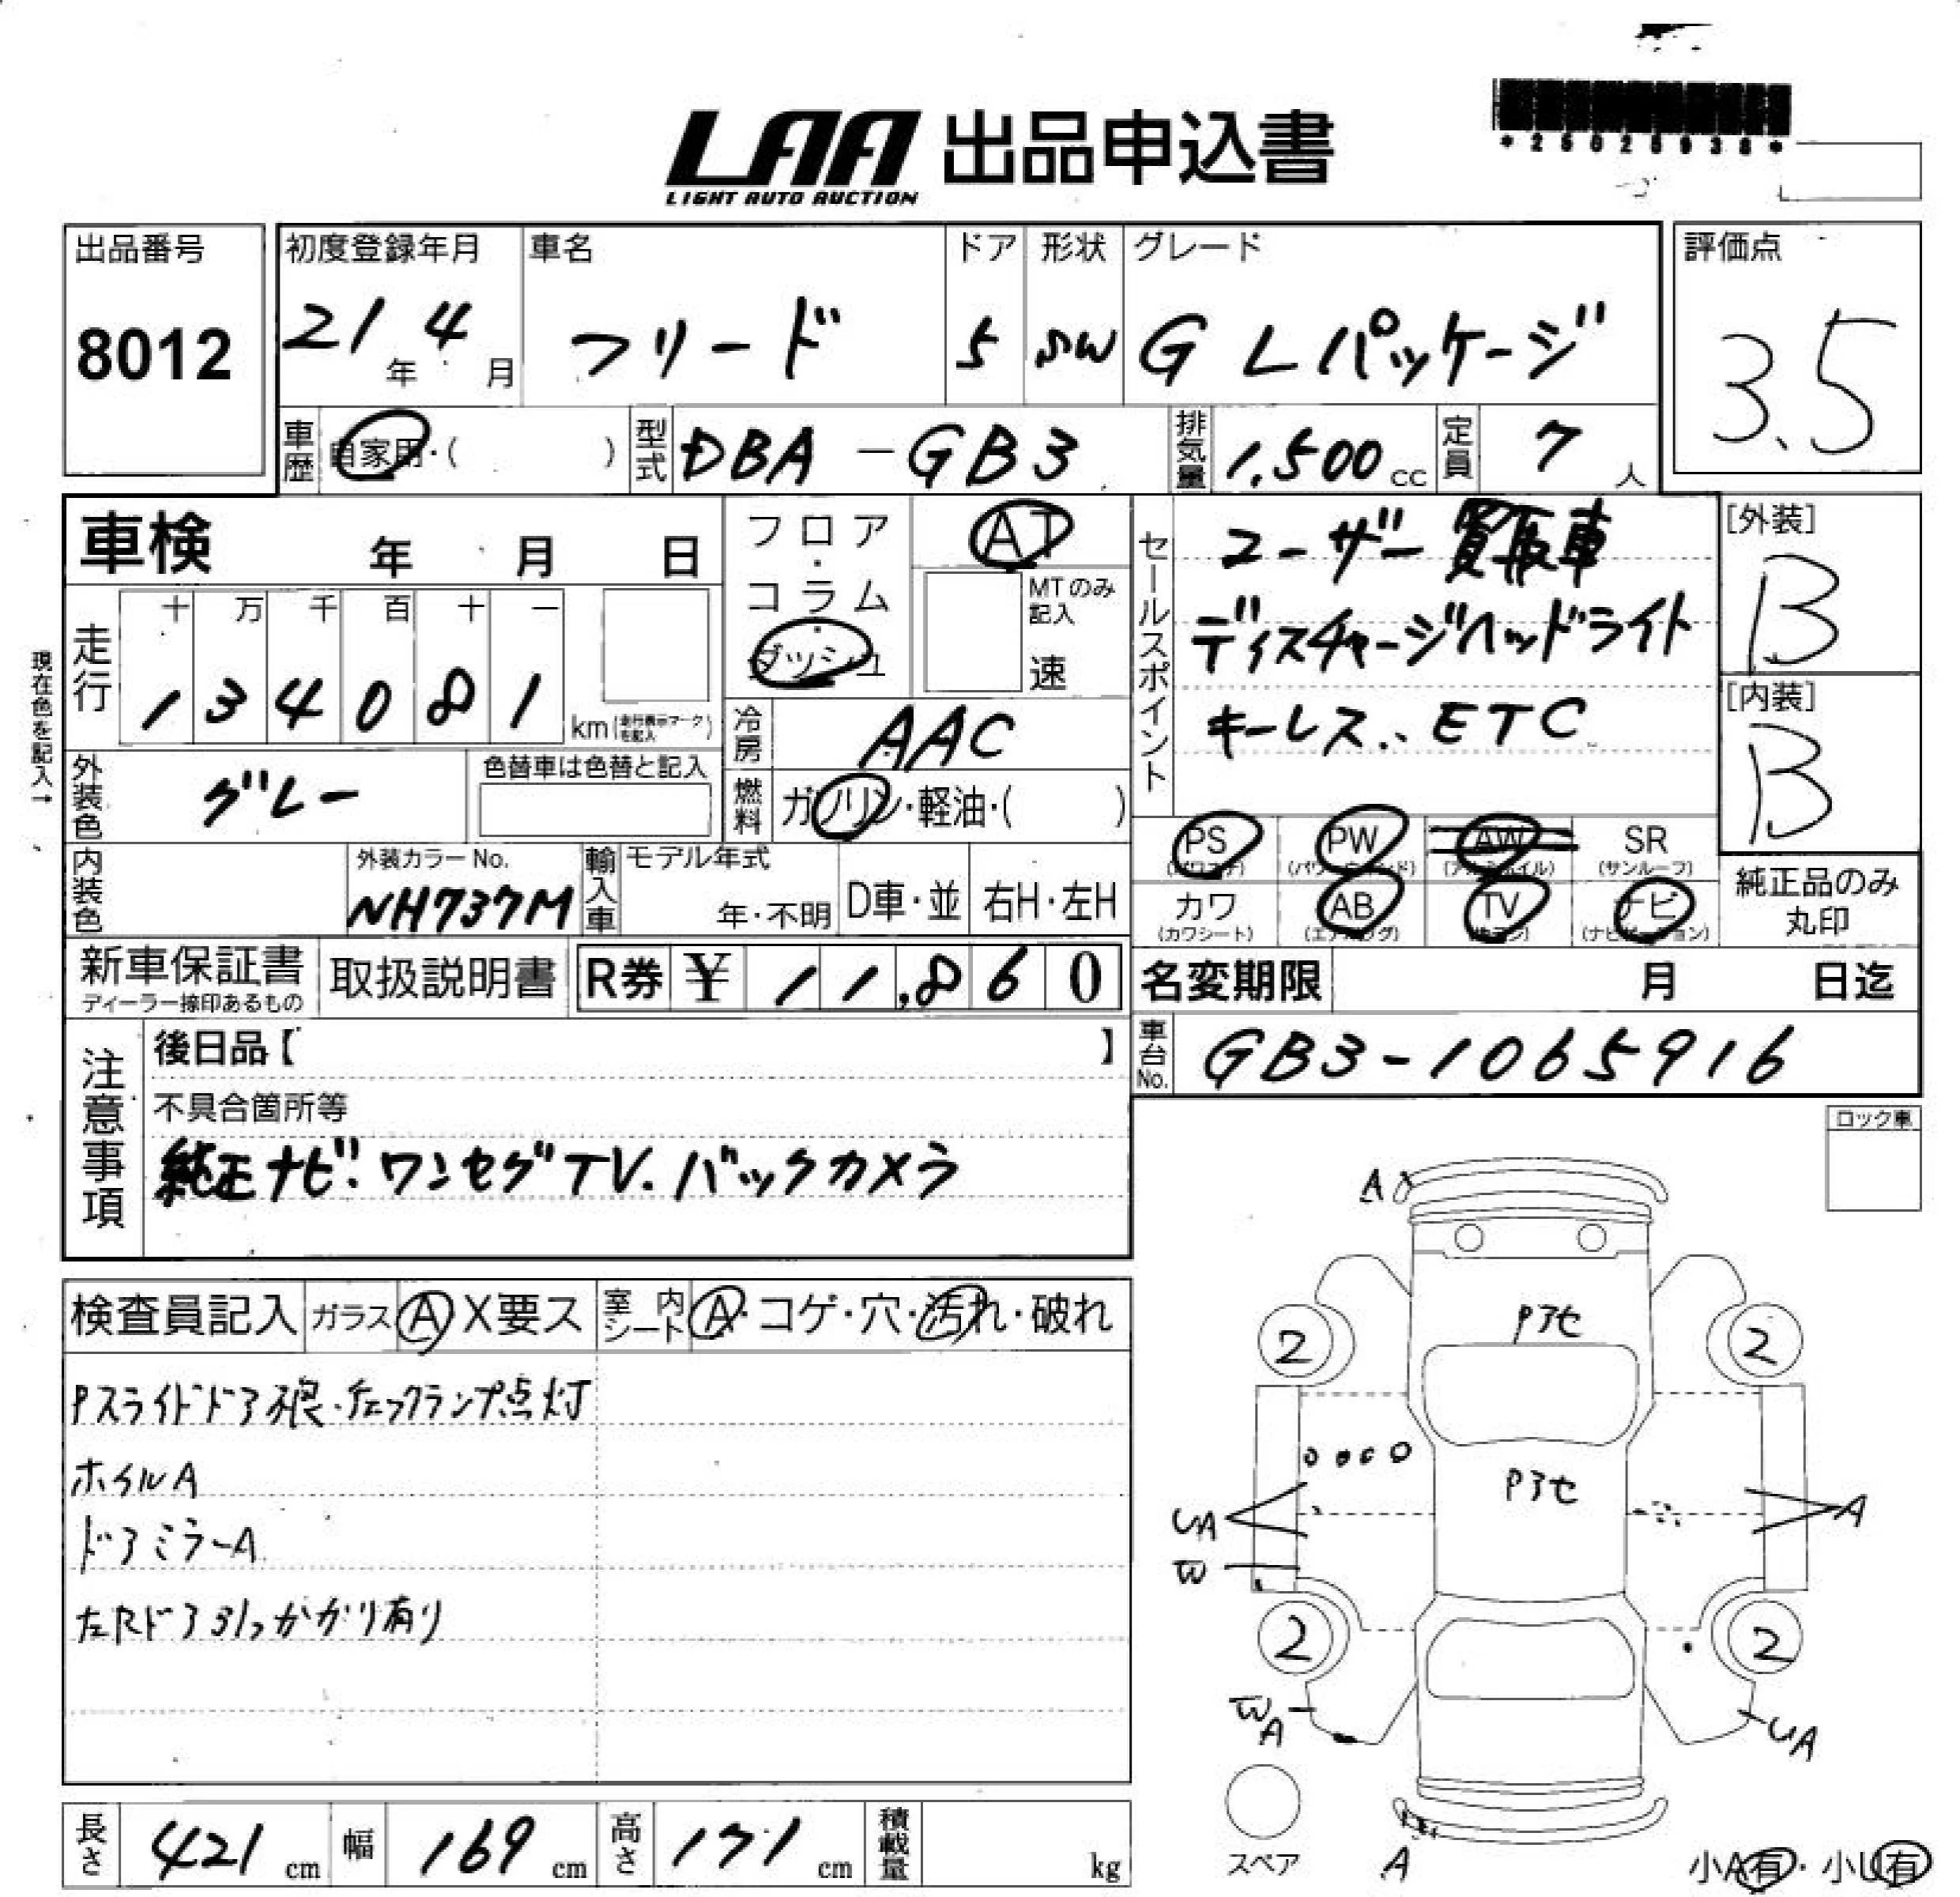 LAA 出品申込書
LIGHT AUTO AUCTION
出品番号
8012
初度登録年月
21年 4月
車名
フリード
ドア
5
形状
SW
グレード
G Lパッケージ
評価点
3.5
車歴 自家用・( )
型式 DBA-GB3
排気量 1,500 cc
定員 7人
車検 年 月 日
フロア・コラム・ダッシュ
AT
MTのみ記入
速
走行
十 万 千 百 十 一
1 3 4 0 8 1 km(走行表示マークを記入)
現在色を記入→
外装色 グレー
色替車は色替と記入
冷房 AAC
燃料 ガソリン・軽油・( )
内装色
外装カラーNo.
NH737M
輸入車
モデル年式
年・不明
D車・並
右H・左H
セールスポイント
ユーザー買取車
ディスチャージヘッドライト
キーレス、ETC
[外装]
B
[内装]
B
PS PW AW SR
(サンルーフ)
カワ AB TV ナビ
(カワシート)
純正品のみ
丸印
新車保証書
ディーラー捺印あるもの
取扱説明書
R券 ¥ 11,860
名変期限 月 日迄
車台No. GB3-1065916
注意事項
後日品【 】
不具合箇所等
純正ナビ.ワンセグTV.バックカメラ
ロック車
検査員記入
ガラス A X要ス
室内シート A・コゲ・穴・汚れ・破れ
Pスライドドア不良.チェックランプ点灯
ホイルA
ドアミラーA
左Rドア引っかかり有り
A
Pアセ
2 2
Pアセ
UA
A
W
2 2
WA
UA
スペア
A
小A有・小U有
長さ 421 cm
幅 169 cm
高さ 171 cm
積載量 kg